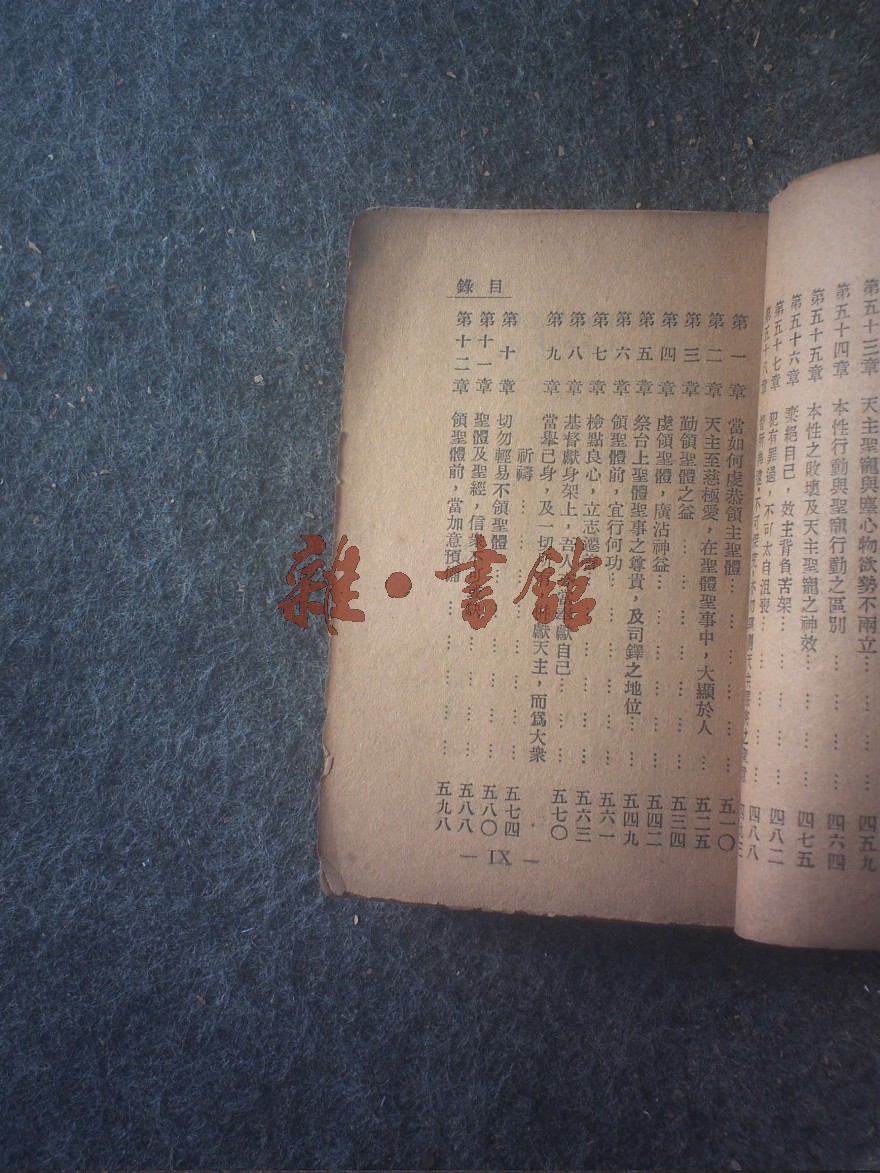 第五十三章 天主聖寵與塵心物欲勢不兩立… … … 四五九
第五十四章 本性行動與聖寵行動之區別 … … … 四六四
第五十五章 本性之敗壞及天主聖寵之神效… … … … 四七五
第五十六章 棄絕自己，效主背負苦架… … … … … 四八二
第五十七章 犯有罪過，不可太自沮喪… … … … … 四八八
第五十八章
目錄
第一章 當如何虔恭領主聖體… … … … … … 五一〇
第二章 天主至慈極愛，在聖體聖事中，大顯於人 … 五二五
第三章 勤領聖體之益 … … … … … … … 五三四
第四章 虔領聖體，廣沾神益… … … … … … 五四二
第五章 祭台上聖體聖事之尊貴，及司鐸之地位… … 五四九
第六章 領聖體前，宜行何功… … … … … … 五六一
第七章 檢點良心，立志遷善 … … … 五六三
第八章 基督獻身架上，吾人 獻自己… … … 五七〇
第九章 當舉己身，及一切 獻天主，而爲大衆
祈禱 … … … … … … … 五七四
第十章 切勿輕易不領聖體 … … … … 五八〇
第十一章 聖體及聖經，信 … … … 五八八
第十二章 領聖體前，當加意預備 … … … … … 五九八
— IX —
雜·書館